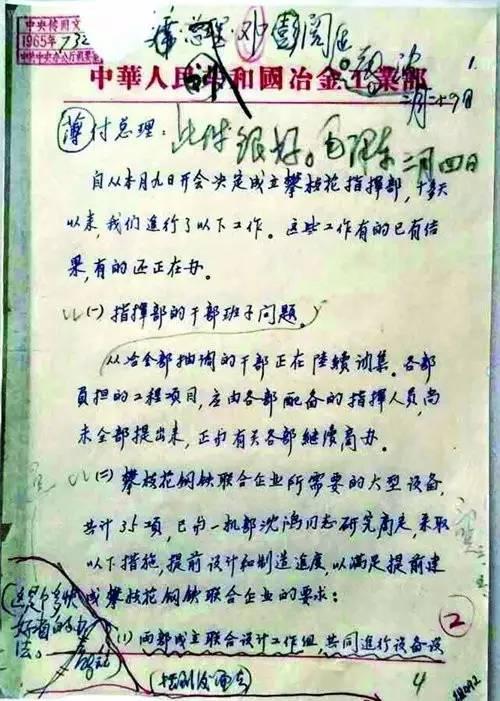 中央传阅文
1965年 732
中共中央办公厅机要室
总理·邓 彭阅
中華人民共和國冶金工業部
二月二十九日
薄付总理：
此件很好。毛泽东 三月四日
自从本月九日开会决定成立攀枝花指揮部，十多天
以来，我们進行了以下工作。这些工作有的已有结
果，有的还正在办。
(一) 指揮部的干部班子问题。
从冶金部抽调的干部正在陸續调集。各部
負担的工程项目，应由各部配备的指揮人員，尚
未全部提出来，正与有关各部継续商办。
(二) 攀枝花钢铁联合企业所需要的大型设备，
共计35项，已与一机部沈鸿同志研究商定，采取
以下措施，提前设计和制造進度，以满足提前建
成攀枝花钢铁联合企业的要求：
(1) 两部成立联合设计工作组，共同進行设备设
这是个多快
好省的办
法。
2
4